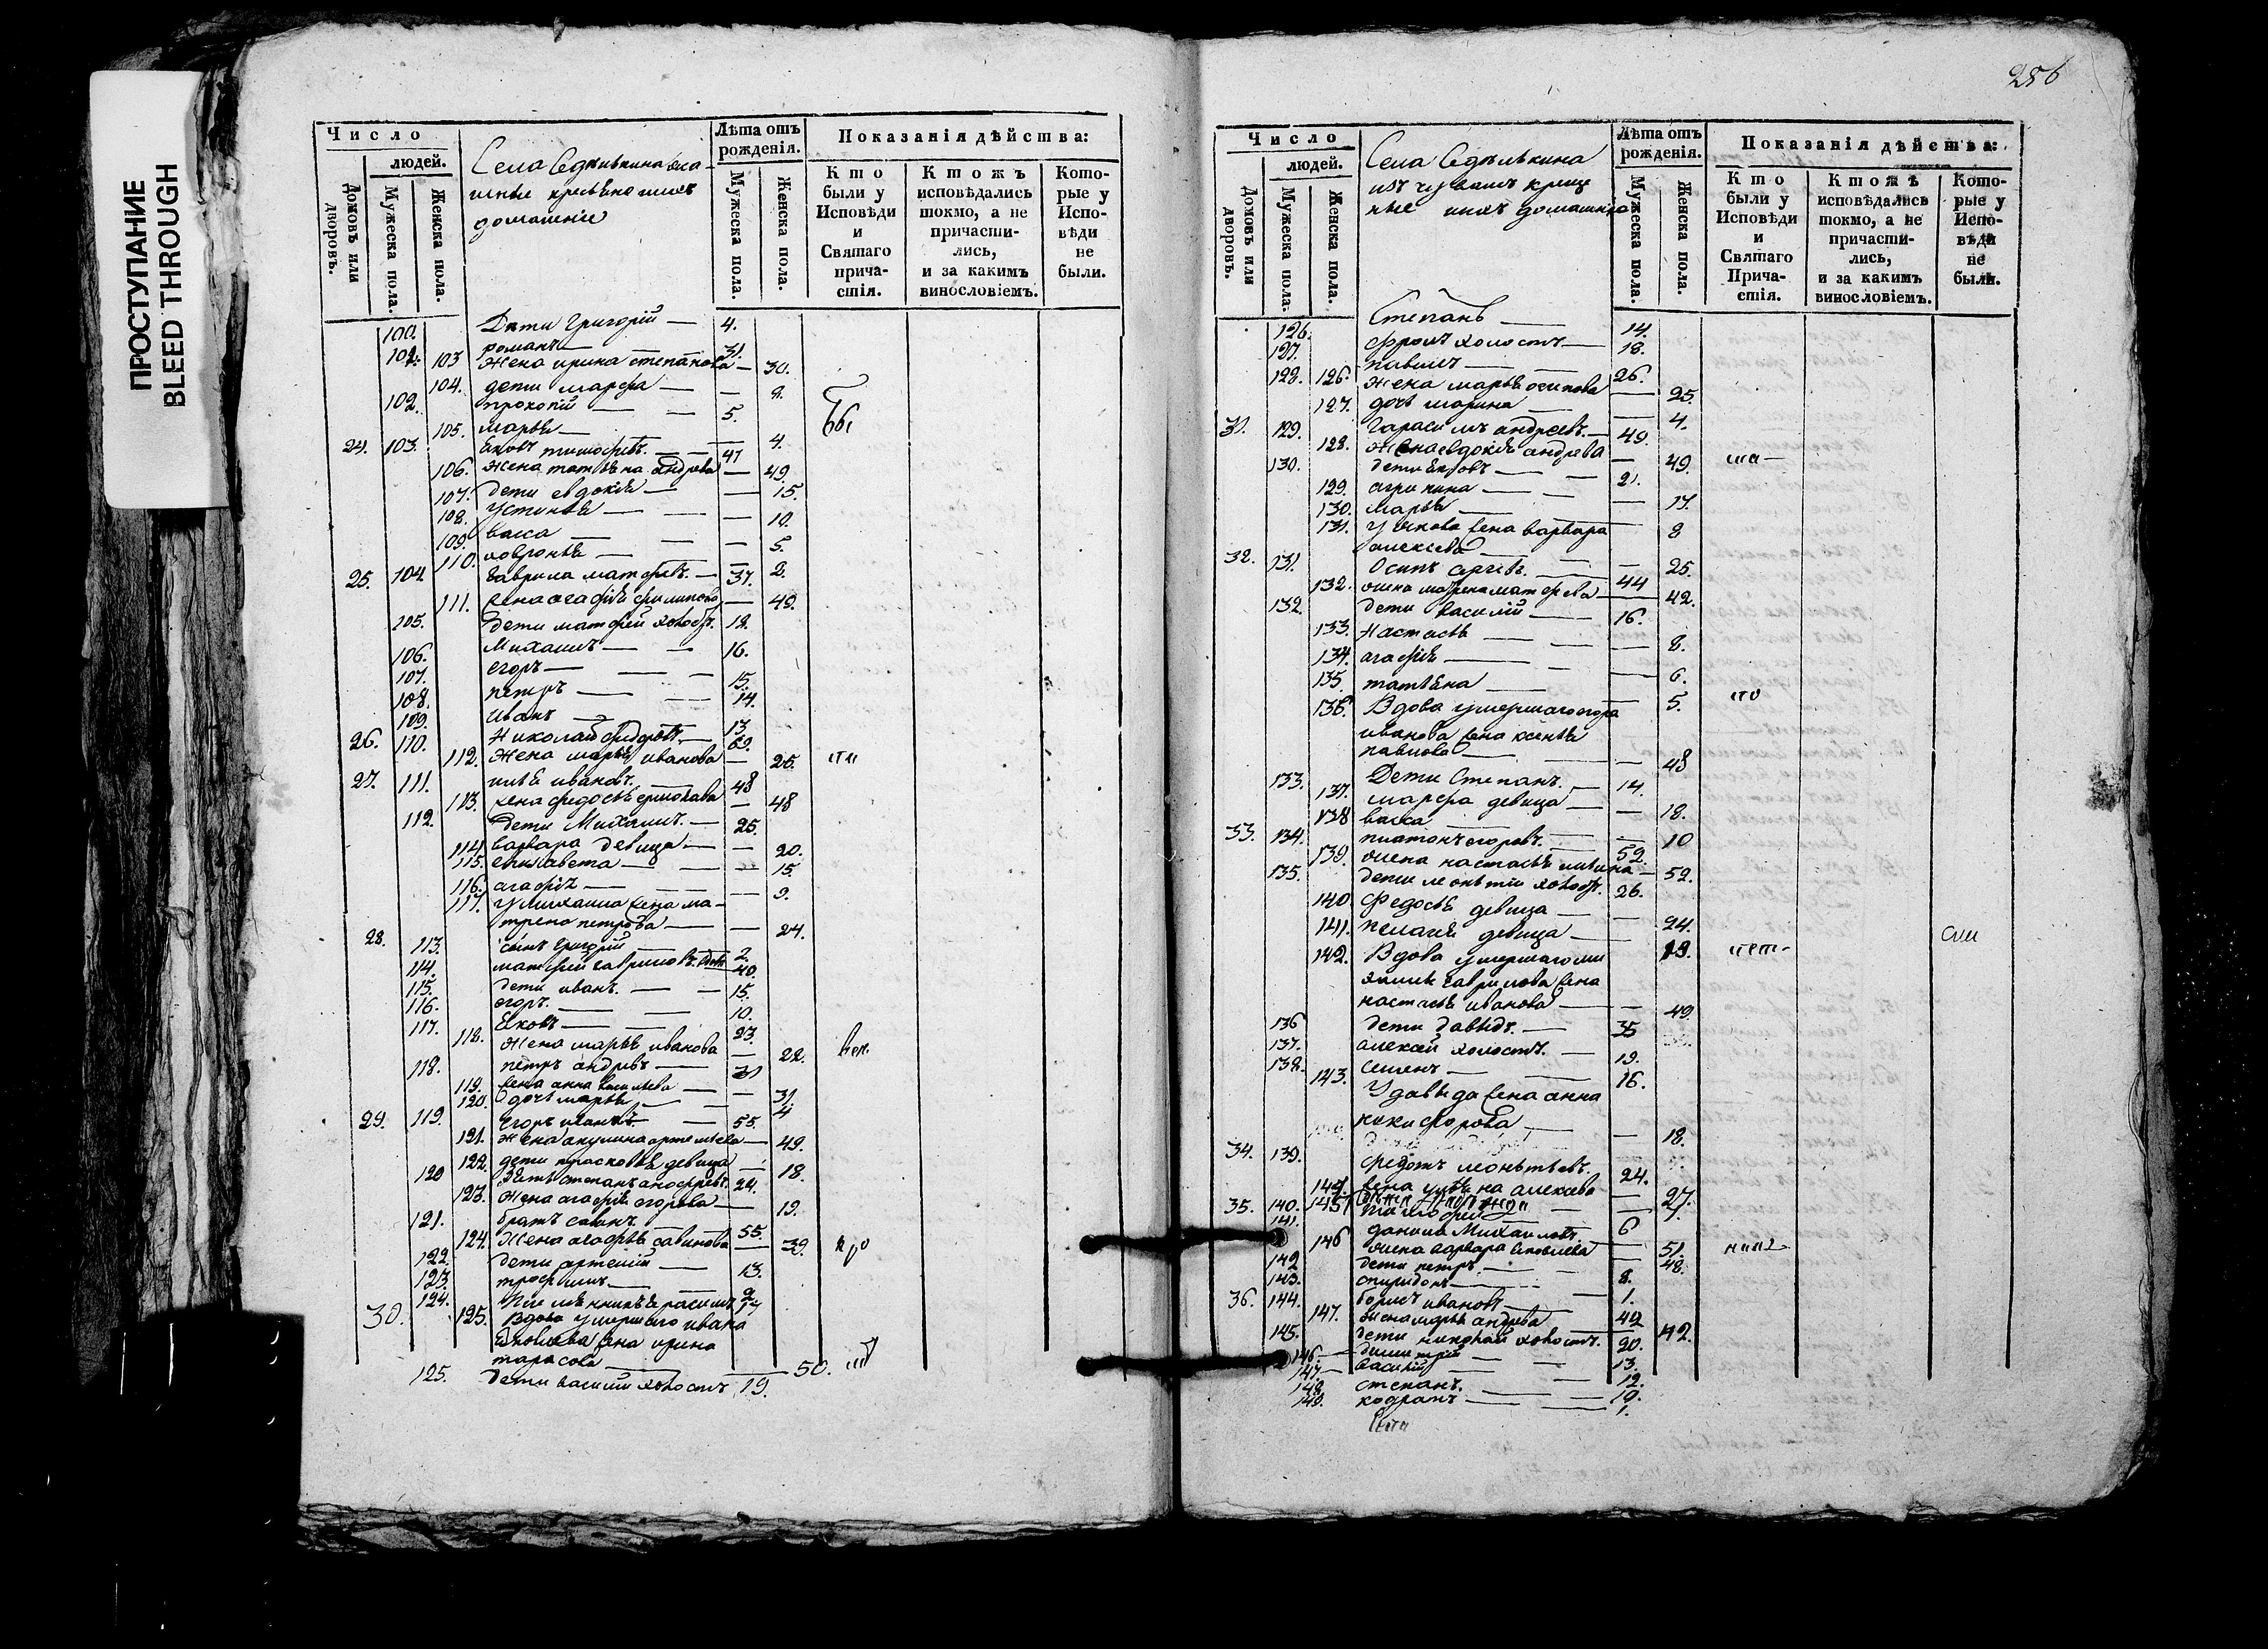 ПРОСТУПАНИЕ
BLEED THROUGH
286
Число
людей.
Домовъ или дворовъ.
Мужеска пола.
Женска пола.
Села Седѣлькина
домашніе
Лѣта отъ рожденія.
Мужеска пола.
Женска пола.
Показанія дѣйства:
Кто были у Исповѣди и Святаго прича-стія.
Ктожъ исповѣдались токмо, а не причасти-лись, и за какимъ винословіемъ.
Кото-рые у Испо-вѣди не были.
100. Дети Григорій — 4.
романъ —
101. 31.
103 Жена ирина степанова — 30.
104. дети марфа — — 8.
102. прокопій — — 5.
105. марья — — 4.
24. 103. Яковъ тимофѣевъ. — 47
106. Жена татьяна андрева — 49.
107. дети евдокія — — 15.
108. устинья — — 10.
109. васса — — 5.
110. ховронья — — 2.
25. 104 Гаврила матфѣевъ. — 37.
111. жена агафія филипова — 49.
105. Дети матфей холостъ. 18.
106. Михаилъ — — 16.
107. егоръ — — 15.
108. петръ — — 14.
109. Иванъ — 13
26. 110. Николай федоровъ. — 69.
112. Жена марья иванова — 25.
27. 111. илья ивановъ. — 48
113. жена федосья ермолаева — 48
112. Дети Михаилъ. — 25.
114. варвара девица — — 20.
115. елизавета — — 15.
116. агафія — — 9.
117. у михаила жена ма-
трена петрова — — 24.
28. 113. сынъ григорій — 2.
114. матфей гавриловъ. вдовъ 40.
115. дети иванъ. — — 15.
116. егоръ. — — 10.
117. Яковъ — — 23.
118. Жена марья иванова — 22.
118. петръ андревъ — 31
119. жена анна васильева — 31.
120. дочь марья — — 4
29. 119. Егоръ ивановъ — 55.
121. Жена акулина артемьева — 49.
122. дети прасковья девица — 18.
120 Зять степанъ 24.
123. Жена агафія егорова — 19.
121. братъ савинъ — 55.
124. Жена агафья савинова — 39.
122. дети артемій — 13.
123. трофимъ — 2.
124. Племянникъ герасимъ 17
30. 125. Вдова умершаго ивана
Яковлева жена ирина
тарасова — 50.
125. Дети василій холостъ 19.
Число
людей.
Домовъ или дворовъ.
Мужеска пола.
Женска пола.
Села Седѣлькина
изъ чувашъ креще
ные ихъ домашніе
Лѣта отъ рожденія.
Мужеска пола.
Женска пола.
Показанія дѣйства:
Кто были у Исповѣди и Святаго Прича-стія.
Ктожъ исповѣдались токмо, а не причасти-лись, и за какимъ винословіемъ.
Кото-рые у Испо-вѣди не были.
126. Степанъ — 14.
127. фролъ холостъ — 18.
128. павилъ — 26.
126. Жена марья осипова — 25.
127. дочь марина — — 4.
31. 129. Гарасимъ андреевъ. — 49.
128. Жена евдокія андрева — 49.
130. дети Яковъ — — 21.
129. агрипина — — 17.
130. марья — — 8
131. у якова жена варвара
алексева — — 25.
32. 131. Осипъ сергевъ. — 44
132. жена матрена матфева — 42.
132. дети василій — 16.
133. Настасья — — 8.
134. агафія — — 6.
135. татьяна — — 5.
136. Вдова умершаго егора
иванова жена ксенья
павлова — — 48
133. Дети Степанъ. — 14.
137. марфа девица — — 18.
138 васса — — 10
33. 134. платонъ егоровъ. — 52.
139. жена настасья ильина — 52.
135. дети леонтій холостъ. 26.
140. федосья девица — — 24.
141. пелагея девица — — 19.
142. Вдова умершаго ми
хаилы гаврилова жена
настасья иванова — — 49.
136 дети давыдъ. — 35
137. алексей холостъ. — 19.
138. семенъ — — 16.
143. У давыда жена анна
никифорова — — 18.
34. 139. федотъ леонтьевъ. — 24.
144. жена ульяна алексева — 27.
145
35. 140. тимофей — 6
141. данила Михайловъ. — 51.
146 жена варвара Яковлева — 48.
142 дети петръ. — 8.
143. спиридонъ — 1.
36. 144. борисъ ивановъ — 42
147. Жена марья андрева — 42.
145. дети николай холостъ. 20.
146. димитрій — 13.
147. василій — 12.
148. степанъ. — 10.
149. кодратъ — 1.